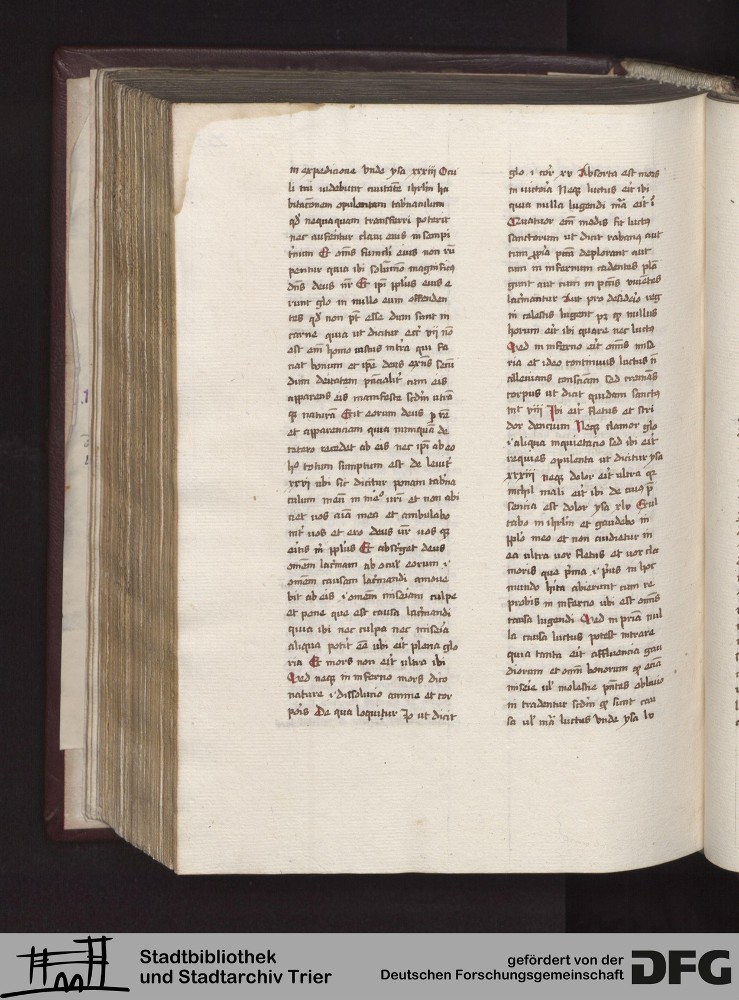 in expedicione vnde ysa xxxiij Ocu
li tui videbunt ciuitatē ihrlm ha
bitacōnem opulentam tabnaculum
qd̄ nequaquam transferri poterit
nec auferentur claui eius in sempi
t'num Et om̄s funicli eius non rū
pentur quia ibi solūmo magnificus
dn̄s deus nr̄ Et ip̄i pplus eius e
runt glo in nullo eum offenden
tes qd̄ non pt̄ esse dum sunt in
carne quia ut dicitur ecc' vij nō
est em̄ homo iustus in t'ra qui fa
ciat bonum et ip̄e deus
dum deitatem cum eis
apparens eis manifeste scdm̄ utrā
q̄ naturā Erit eorum deus
et apparenciam quia numquā de
cetero recedet ab eis nec ip̄i ab eo
h° totum sumptum est de leuit'
xxvi ubi sic dicitur ponam tab'na
culum meū in me° vr̄i et non abi
ciet uos aīa mea et ambulabo
int' uos et ero deus vr̄ uos q̄
eritis m̄ pplus Et absterget deus
omēm lac'mam ab ocul' eorum i'
omēm causam lac'mandi amoue
bit ab eis i' omēm miseiam culpe
et pene que est causa lac'mandi
quia ibi nec culpa nec miseia
aliqua potit eē ubi eit' plena glo
ria Et mors non eit' ultra ibi
Sed neq̄ in inferno mors dico
nature i' dissolucio anime et cor
pois De qua loquitur Jo ut dicit
glo i cor' xv Absorta est mors
in victoia Neq̄ luctus eit' ibi
quia nulla lugendi mā eit' i'
Quatuor em̄ modis fit luctus
sanctorum ut dicit rabanus aut
cum pp̄ia pctā deplorant aut
cum in infernum cadentes plā
gunt aut cum in pctīs viuētes
lac'mantur Aut pro desideio reg
ni celestis lugent q̄ nullus
horum eit' ibi quare nec luctus
Sed in inferno eit' om̄s mise
ria et ideo continuus luctus n̄
alleuians conscīam sed cremās
corpus ut dicit quidam sanctus
mt' viij Ibi eit' fletus et stri
dor dencium Neq̄ clamor glo
i' aliqua inquietacio sed ibi eit'
requies opulenta ut dicitur ysa
xxxiij neq̄ dolor eit' ultra q̄
nichil mali eit' ibi de cuius p̄
sencia est dolor ysa xlv Exul
tabo in ihrlm et gaudebo in
pplo meo et non audietur in
ea ultra vox fletus et vox cla
moris que p'ma i' p'us in hoc
mundo hita abierunt cum re
probis in inferno ubi est om̄s
causa lugendi Sed in pria nul
la causa luctus potest intrare
quia tanta eit' affluencia gau
diorum et om̄m bonorum q̄ eciā
miseie ul' molestie pntes obliuio
ni tradentur scdm̄ q̄ sunt cau
sa ul' mā luctus Vnde ysa lv
Stadtbibliothek
und Stadtarchiv Trier
gefördert von der
Deutschen Forschungsgemeinschaft
DFG